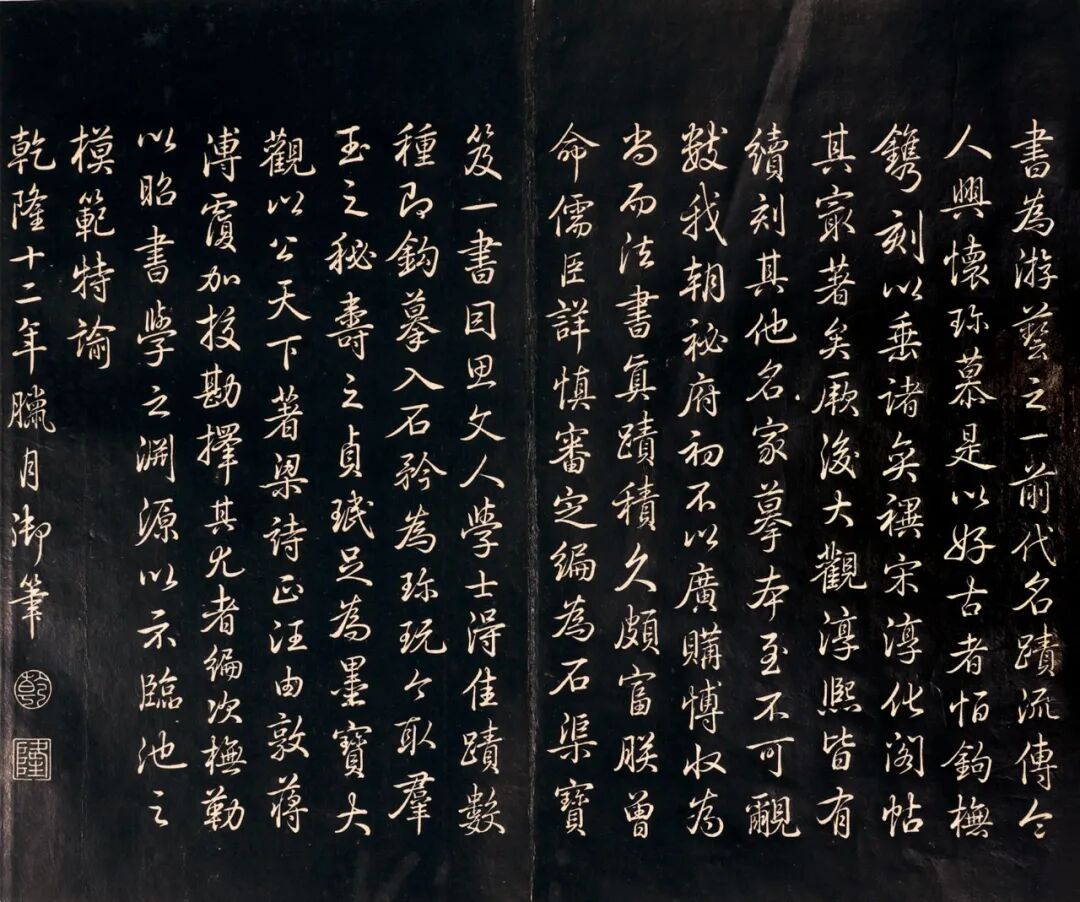 書為游藝之一前代名蹟流傳令
人興懷珎慕是以好古者恒鉤橅
鐫刻以垂諸奕禩宋淳化閣帖
其㝡著矣厥後大觀淳熙皆有
續刻其他名家摹本至不可覼
數我朝祕府初不以廣購博收為
尚而法書真蹟積久頗富朕曾
命儒臣詳慎審定編為石渠寶
笈一書因思文人學士得佳蹟數
種即鈎摹入石矜為珎玩今取羣
玉之秘壽之貞珉足為墨寶大
觀以公天下著梁詩正汪由敦蔣
溥覆加挍勘擇其尤者編次橅勒
以昭書學之淵源以示臨池之
模範特諭
乾隆十二年臘月御筆
乾
隆